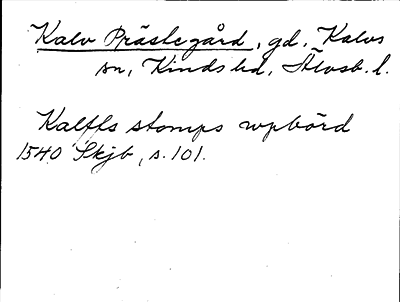 Kalv Prästegård, gd, Kalvs
sn, Kinds hd, Älvsb. l.
Kalffs stomps wpbörd
1540 Skjb, s. 101.